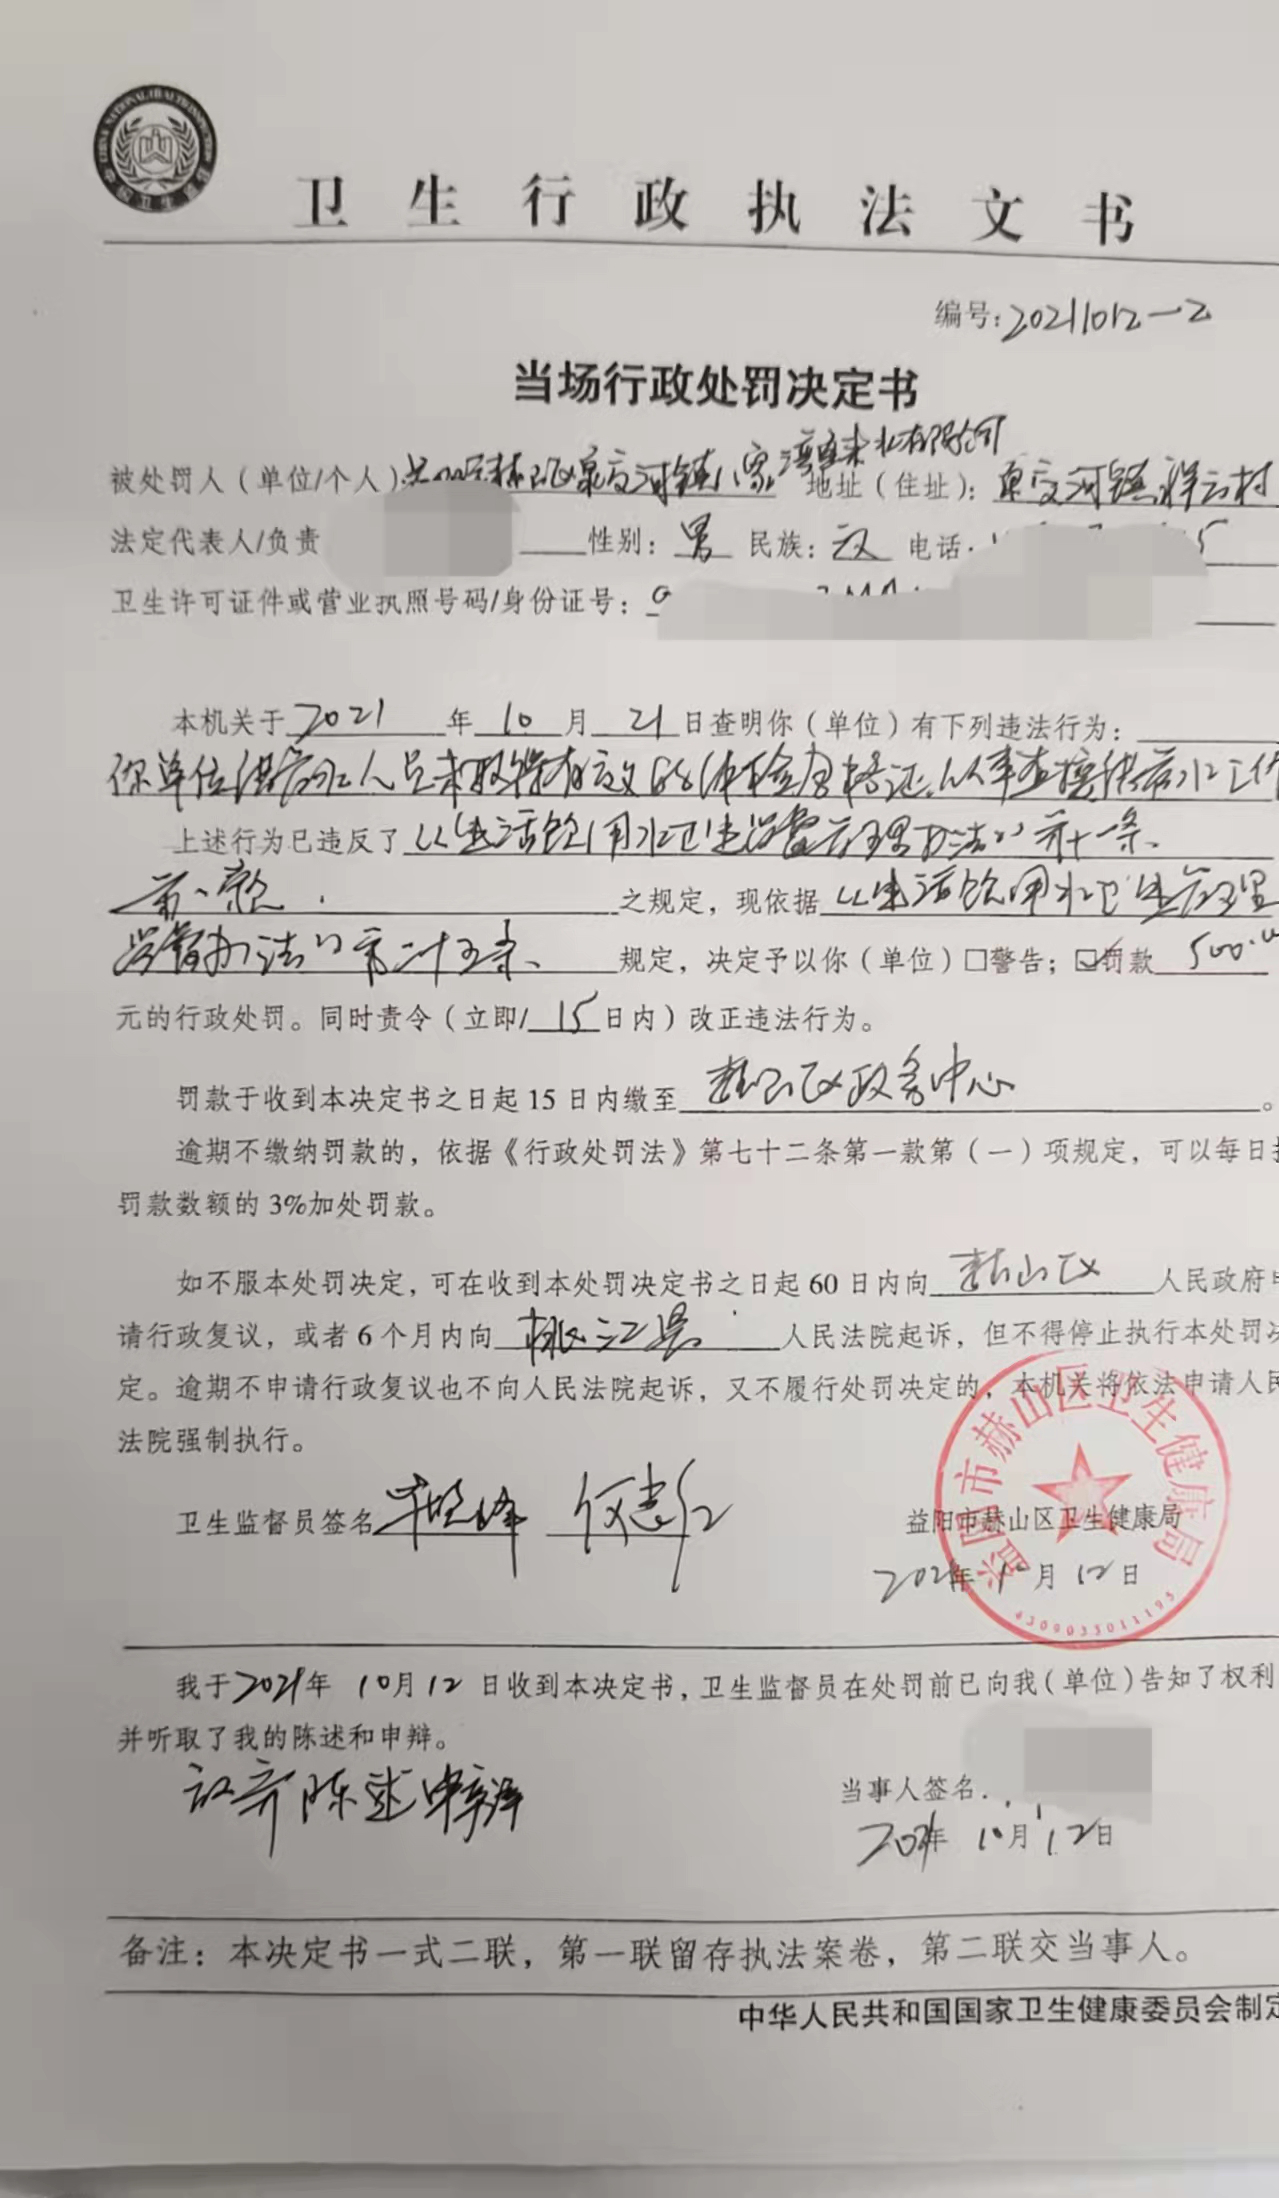 卫生行政执法文书
编号:20211012-2
当场行政处罚决定书
被处罚人（单位/个人） 赫山区泉交河镇 家湾自来水有限公司 地址（住址）：泉交河镇祥云村
法定代表人/负责 性别：男 民族：汉 电话
卫生许可证件或营业执照号码/身份证号：
本机关于2021年10月21日查明你（单位）有下列违法行为：
你单位供管水人员未取得有效的体检合格证从事直接供管水工作
上述行为已违反了《生活饮用水卫生监督管理办法》第十一条、
第一款 之规定，现依据《生活饮用水卫生管理
监督办法》第二十五条、规定，决定予以你（单位）□警告；☑罚款 500.
元的行政处罚。同时责令（立即/15日内）改正违法行为。
罚款于收到本决定书之日起15日内缴至赫山区政务中心。
逾期不缴纳罚款的，依据《行政处罚法》第七十二条第一款第（一）项规定，可以每日
罚款数额的3%加处罚款。
如不服本处罚决定，可在收到本处罚决定书之日起60日内向赫山区人民政府申
请行政复议，或者6个月内向桃江县人民法院起诉，但不得停止执行本处罚决
定。逾期不申请行政复议也不向人民法院起诉，又不履行处罚决定的，本机关将依法申请人民
法院强制执行。
卫生监督员签名
益阳市赫山区卫生健康局
益阳市赫山区卫生健康局
2021年10月12日
4309033011193
我于2021年10月12日收到本决定书，卫生监督员在处罚前已向我（单位）告知了权利
并听取了我的陈述和申辩。
放弃陈述申辩
当事人签名
2021年10月12日
备注：本决定书一式二联，第一联留存执法案卷，第二联交当事人。
中华人民共和国国家卫生健康委员会制定